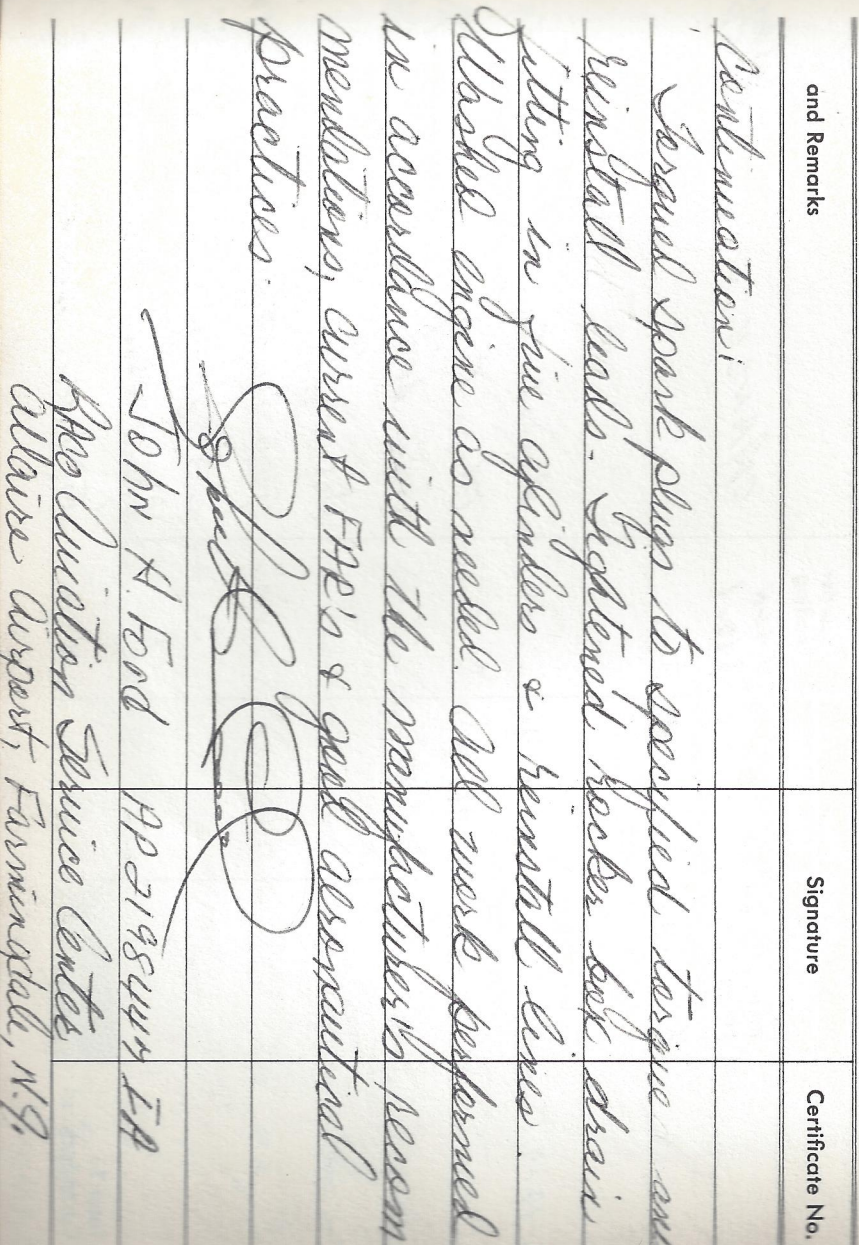 and Remarks Signature Certificate No.
Continuation:
Torqued spark plugs to specified torque an
reinstall leads. Tightened rocker box drain
fitting in five cylinders & reinstall lines.
Washed engine as needed All work performed
in accordance with the manufacturer's recom
mendations, current FAR's & good aeronautical
practices.
John H. Ford AP IA
Aviation Service Center
Allaire Airport, Farmingdale, N.J.